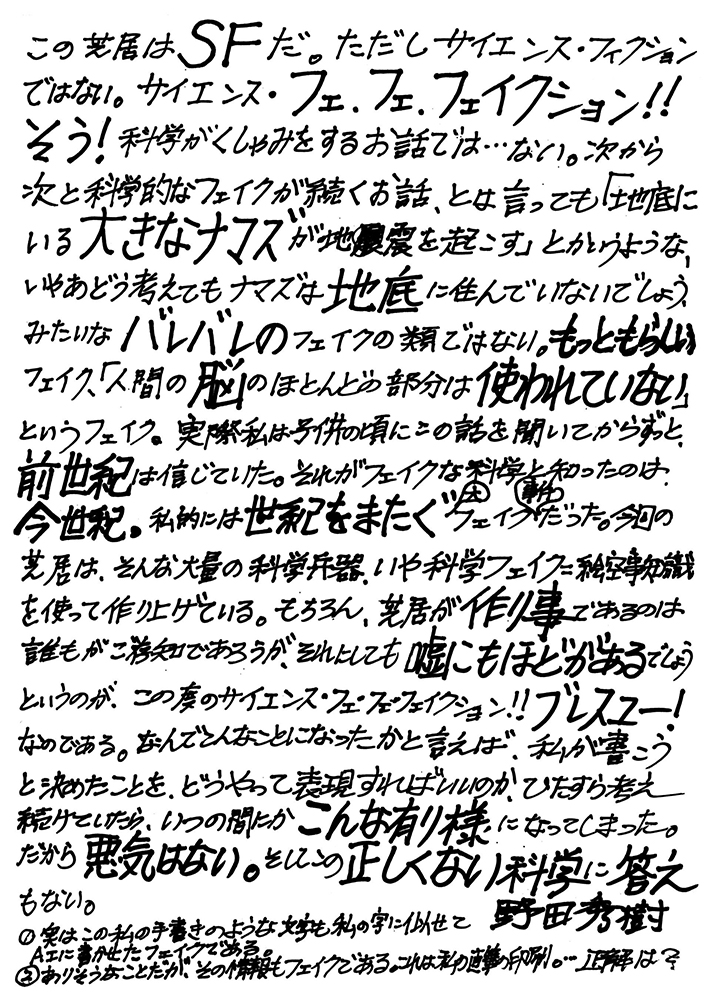 この芝居はSFだ。ただしサイエンス・フィクション
ではない。サイエンス・フェ、フェ、フェイクション!!
そう!科学がくしゃみをするお話では…ない。次から
次と科学的なフェイクが続くお話、とは言っても「地底に
いる大きなナマズが地震を起こす」とかいうような、
いやあどう考えてもナマズは地底に住んでいないでしょう、
みたいなバレバレのフェイクの類ではない。もっともらしい
フェイク、「人間の脳のほとんどの部分は使われていない」
というフェイク。実際私は子供の頃にこの話を聞いてからずっと、
前世紀は信じていた。それがフェイクな科学と知ったのは、
今世紀。私的には世紀をまたぐ大フェイク事件だった。今回の
芝居は、そんな大量の科学兵器、いや科学フェイク=絵空事知識
を使って作り上げている。もちろん、芝居が作り事であるのは
誰もがご存知であろうが、それにしても嘘にもほどがあるでしょう
というのが、この度のサイエンス・フェ・フェ・フェイクション!!ブレスユー!
なのである。なんでこんなことになったかと言えば、私が書こう
と決めたことを、どうやって表現すればいいのか、ひたすら考え
続けていたら、いつの間にかこんな有り様になってしまった。
だから悪気はない。そしてこの正しくない科学に答え
もない。
野田秀樹
①実はこの私の手書きのような文字も私の字に似せて
AIに書かせたフェイクである。
②ありそうなことだが、その情報もフェイクである。これは私の直筆の印刷。…正解は?